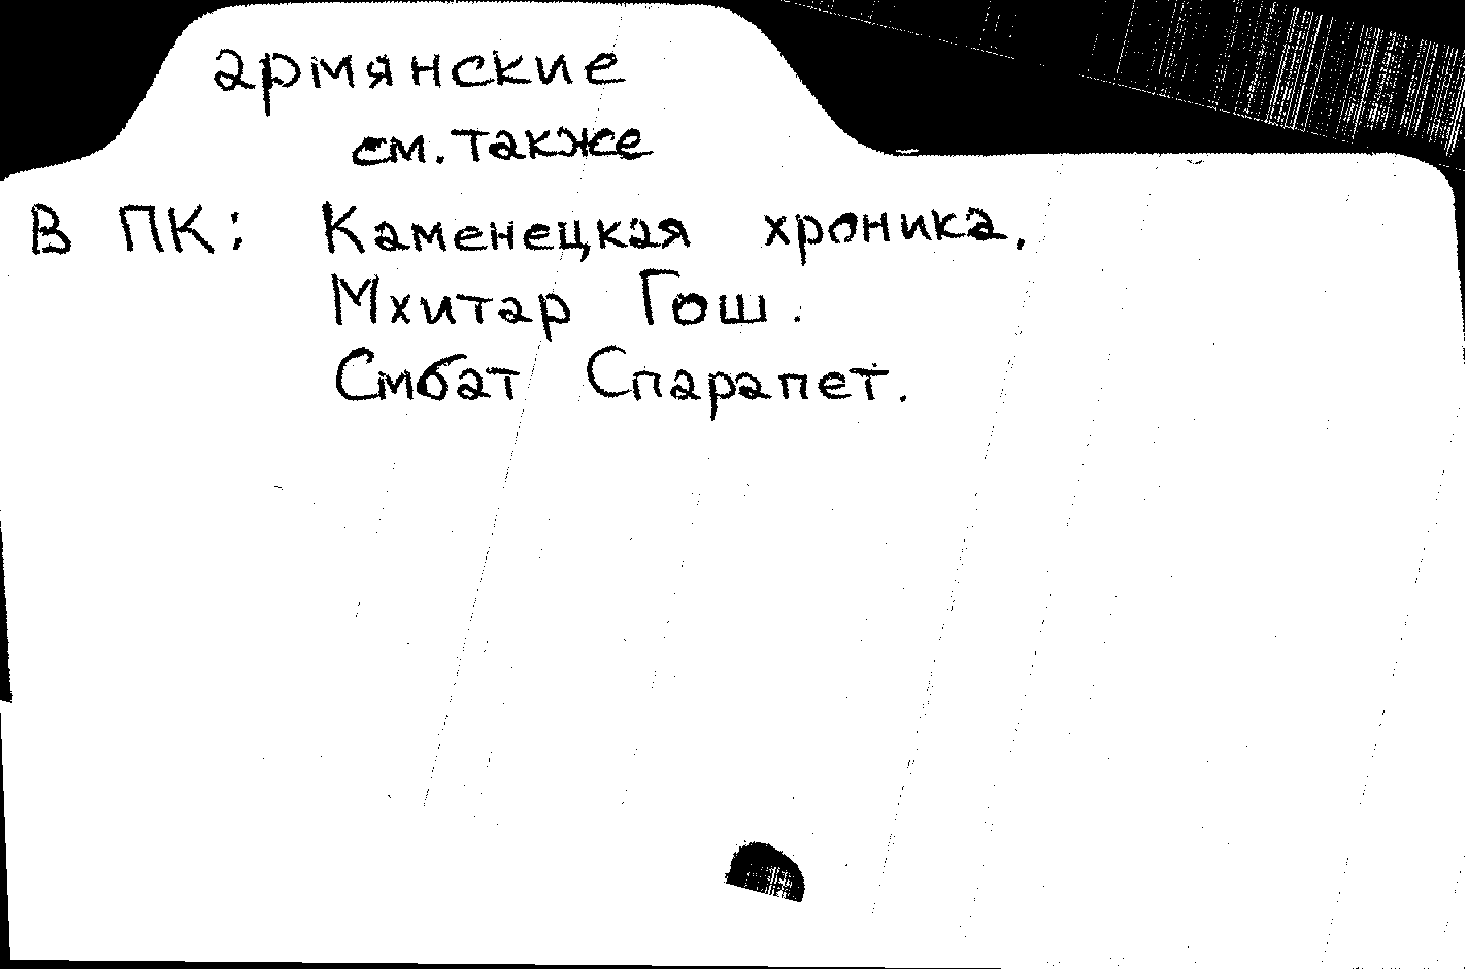 армянские
см. также
В ПК: Каменецкая хроника.
Мхитар Гош.
Смбат Спарапет.